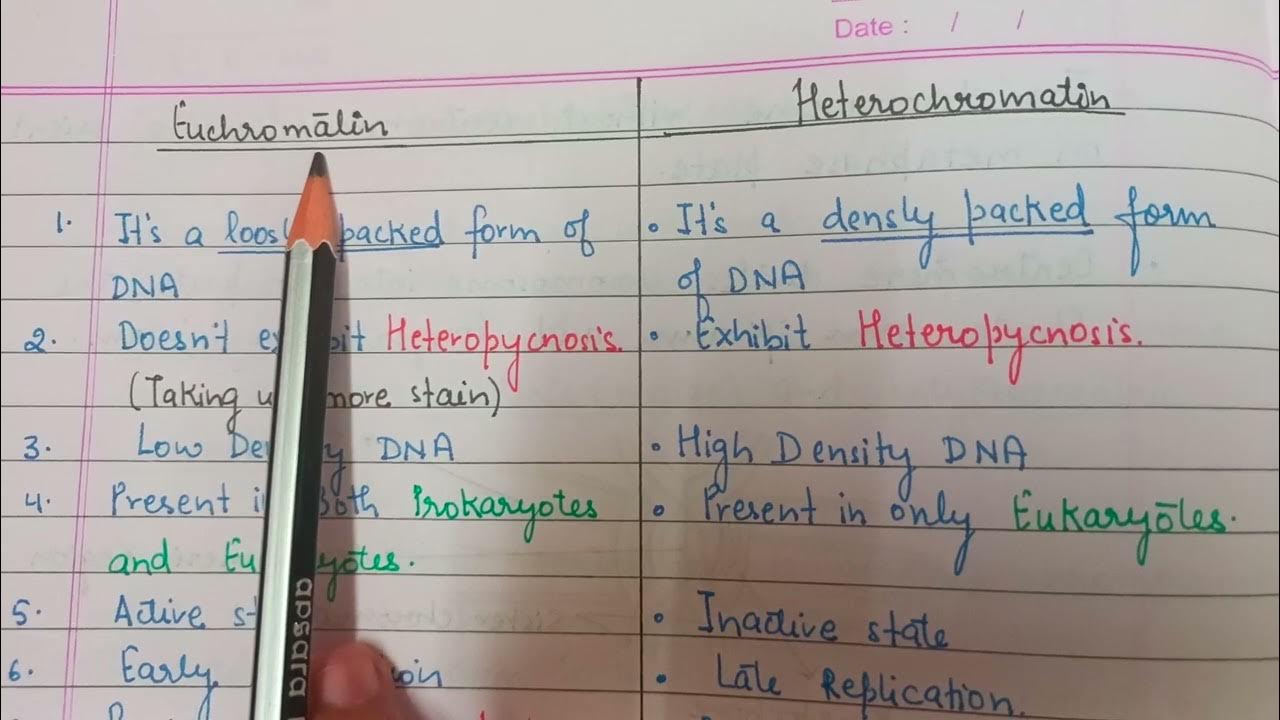 Date : / /
Euchromatin
Heterochromatin
1. It's a packed form of
DNA
• It's a densly packed form
of DNA
2. Doesn't Heteropycnosis.
(Taking more stain)
• Exhibit Heteropycnosis.
3. Low DNA
• High Density DNA
4. Present Both Prokaryotes
and
• Present in only Eukaryotes.
5. Active
• Inactive state
6. Early
• Late Replication.
apsara